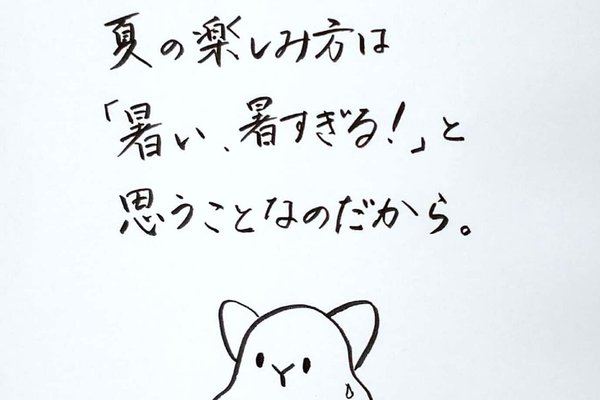 夏の楽しみ方は
「暑い、暑すぎる！」と
思うことなのだから。